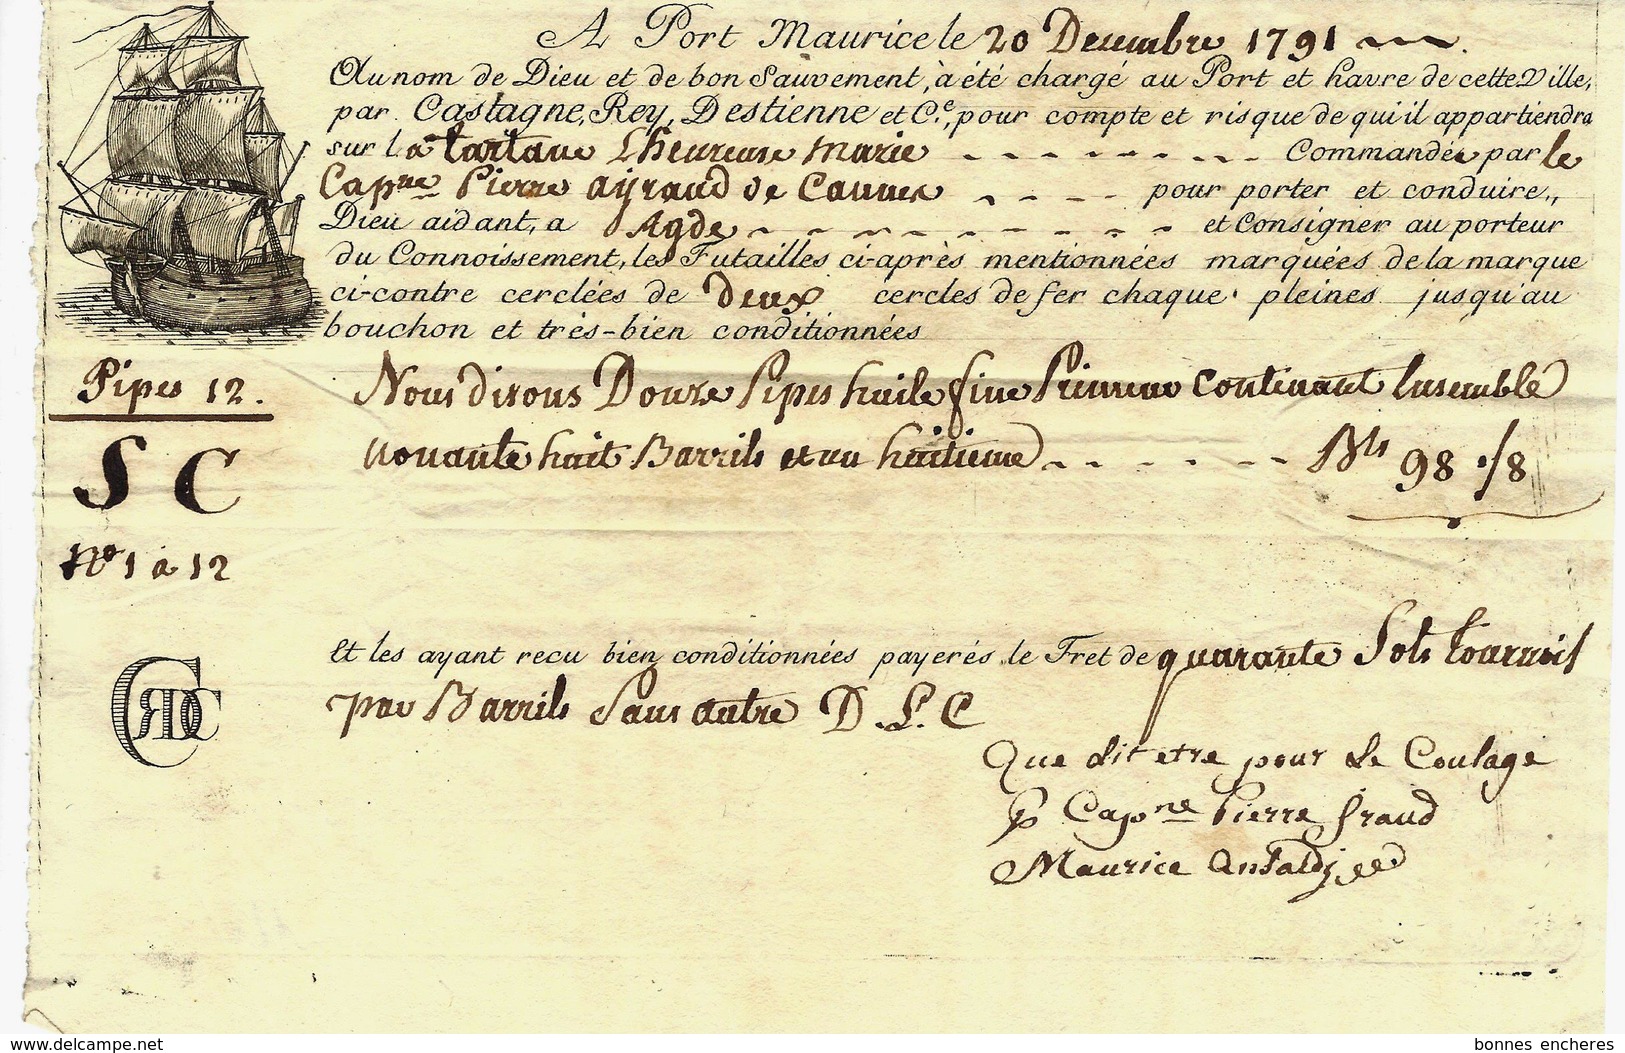 A Port Maurice le 20 Decembre 1791
Au nom de Dieu et de bon Sauvement, à été chargé au Port et havre de cette Ville,
par Castagne, Rey, Destienne et C.e, pour compte et risque de qui il appartiendra
sur la tartane L'heureuse Marie Commandée par le
Capne Pierre ayraud de Cannes pour porter et conduire,,
Dieu aidant, a Agde et Consigner au porteur
du Connoissement, les Futailles ci-après mentionnées marquées de la marque
ci-contre cerclées de deux cercles de fer chaque pleines jusqu'au
bouchon et très-bien conditionnées
Pipes 12. Nous disons Douze Pipes huile fine Primeur Contenant Ensemble
nonante huit Barrils et un huitieme Bls 98 1/8
S C
No 1 à 12
Et les ayant recu bien conditionnées payerés le Fret de quarante Sols tournois
par Barrils Sans autre D.L.C
CRDC
Que dit etre pour Le Coulage
p Capne Pierre Eraud
Maurice Ansaldj
bonnes-encheres.delcampe.net
bonnes encheres